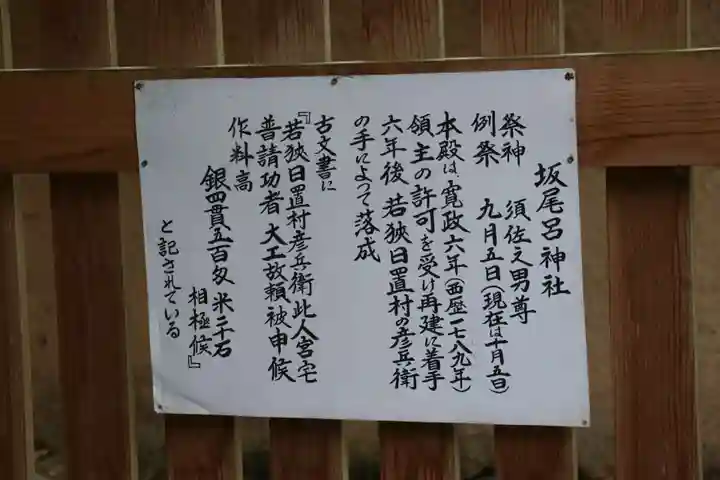 坂尾呂神社
祭神　須佐之男尊
例祭　九月五日(現在は十月五日)
本殿は、寛政六年(西歴一七八九年)
領主の許可を受け再建に着手
六年後若狹日置村の彦兵衛
の手によって落成
古文書に
『若狹日置村彦兵衛此人宮宅
普請功者大工故頼被申候
作料高
銀四貫五百匁米二千石
相極候』
と記されている